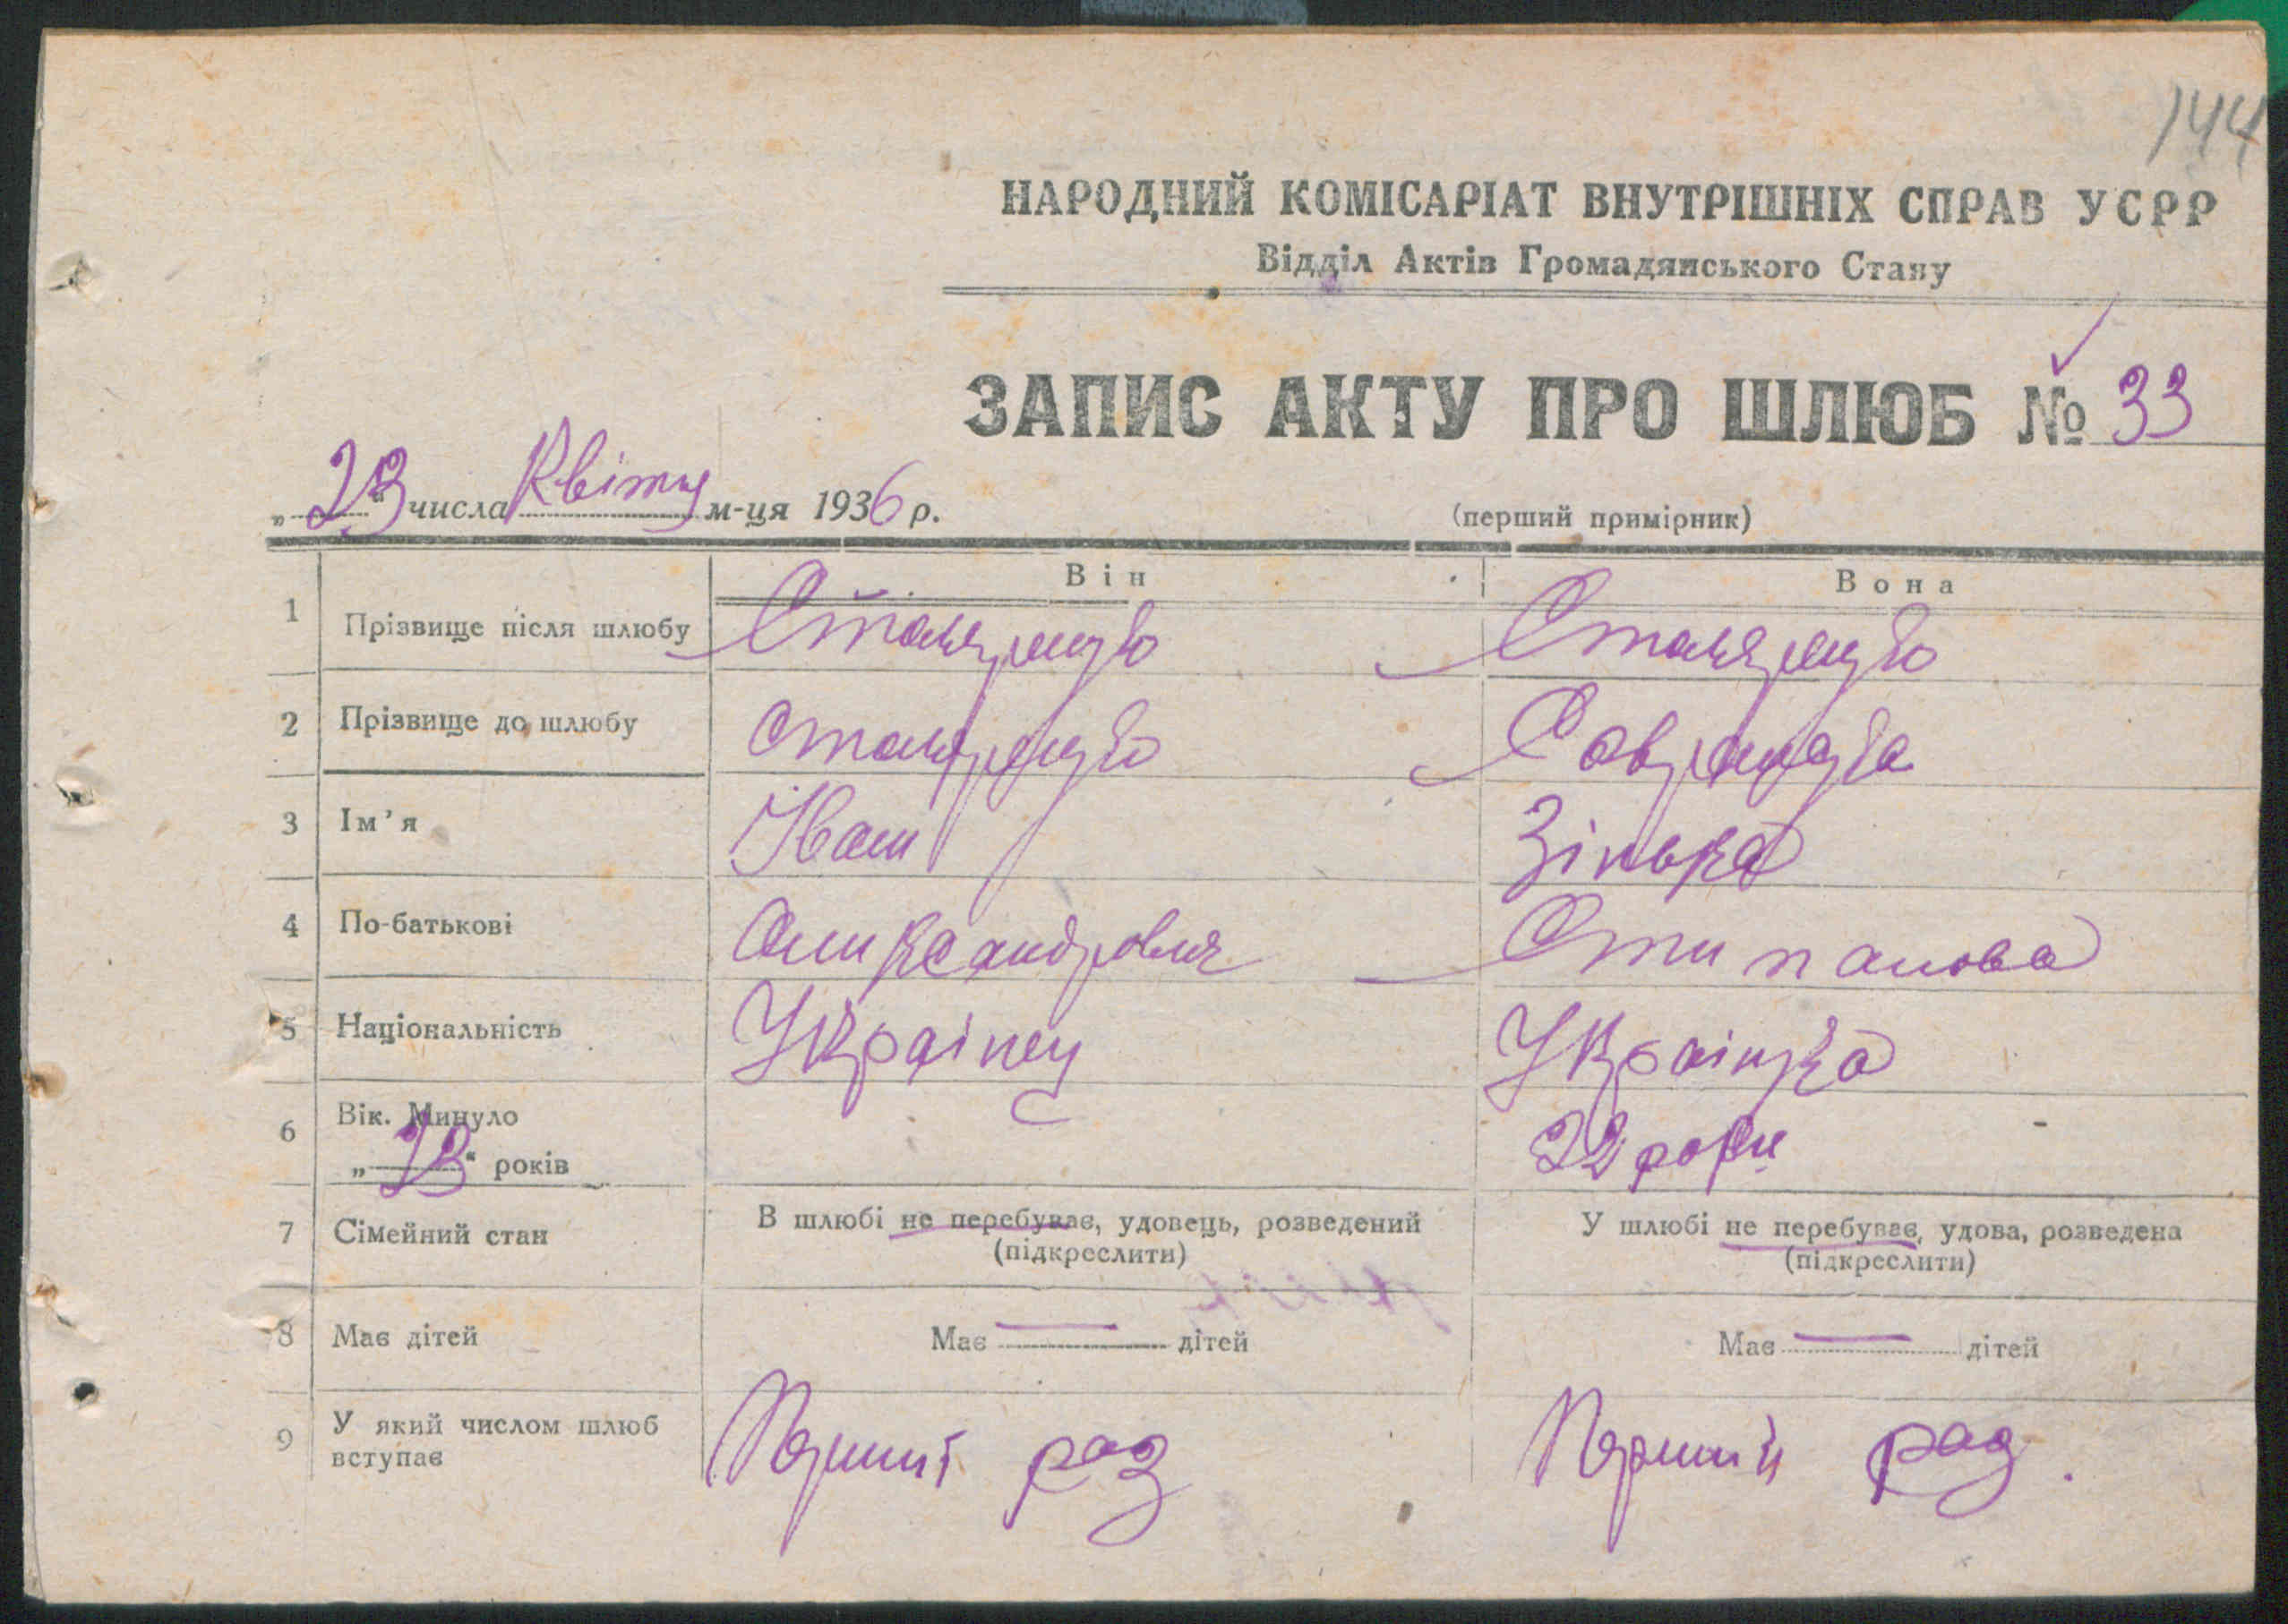 144
НАРОДНИЙ КОМІСАРІАТ ВНУТРІШНІХ СПРАВ УСРР
Відділ Актів Громадянського Стану
ЗАПИС АКТУ ПРО ШЛЮБ № 33
„23" числа Квітня м-ця 1936 р.
(перший примірник)
Він Вона
1 Прізвище після шлюбу
2 Прізвище до шлюбу
3 Ім'я Іван Зінька
4 По-батькові Олександрович Стипанова
5 Національність Українец Українка
6 Вік. Минуло
„23" років 22 роки
7 Сімейний стан В шлюбі не перебуває, удовець, розведений У шлюбі не перебуває, удова, розведена
(підкреслити) (підкреслити)
8 Має дітей Має — дітей Має — дітей
9 У який числом шлюб
вступає Перший раз Перший раз.